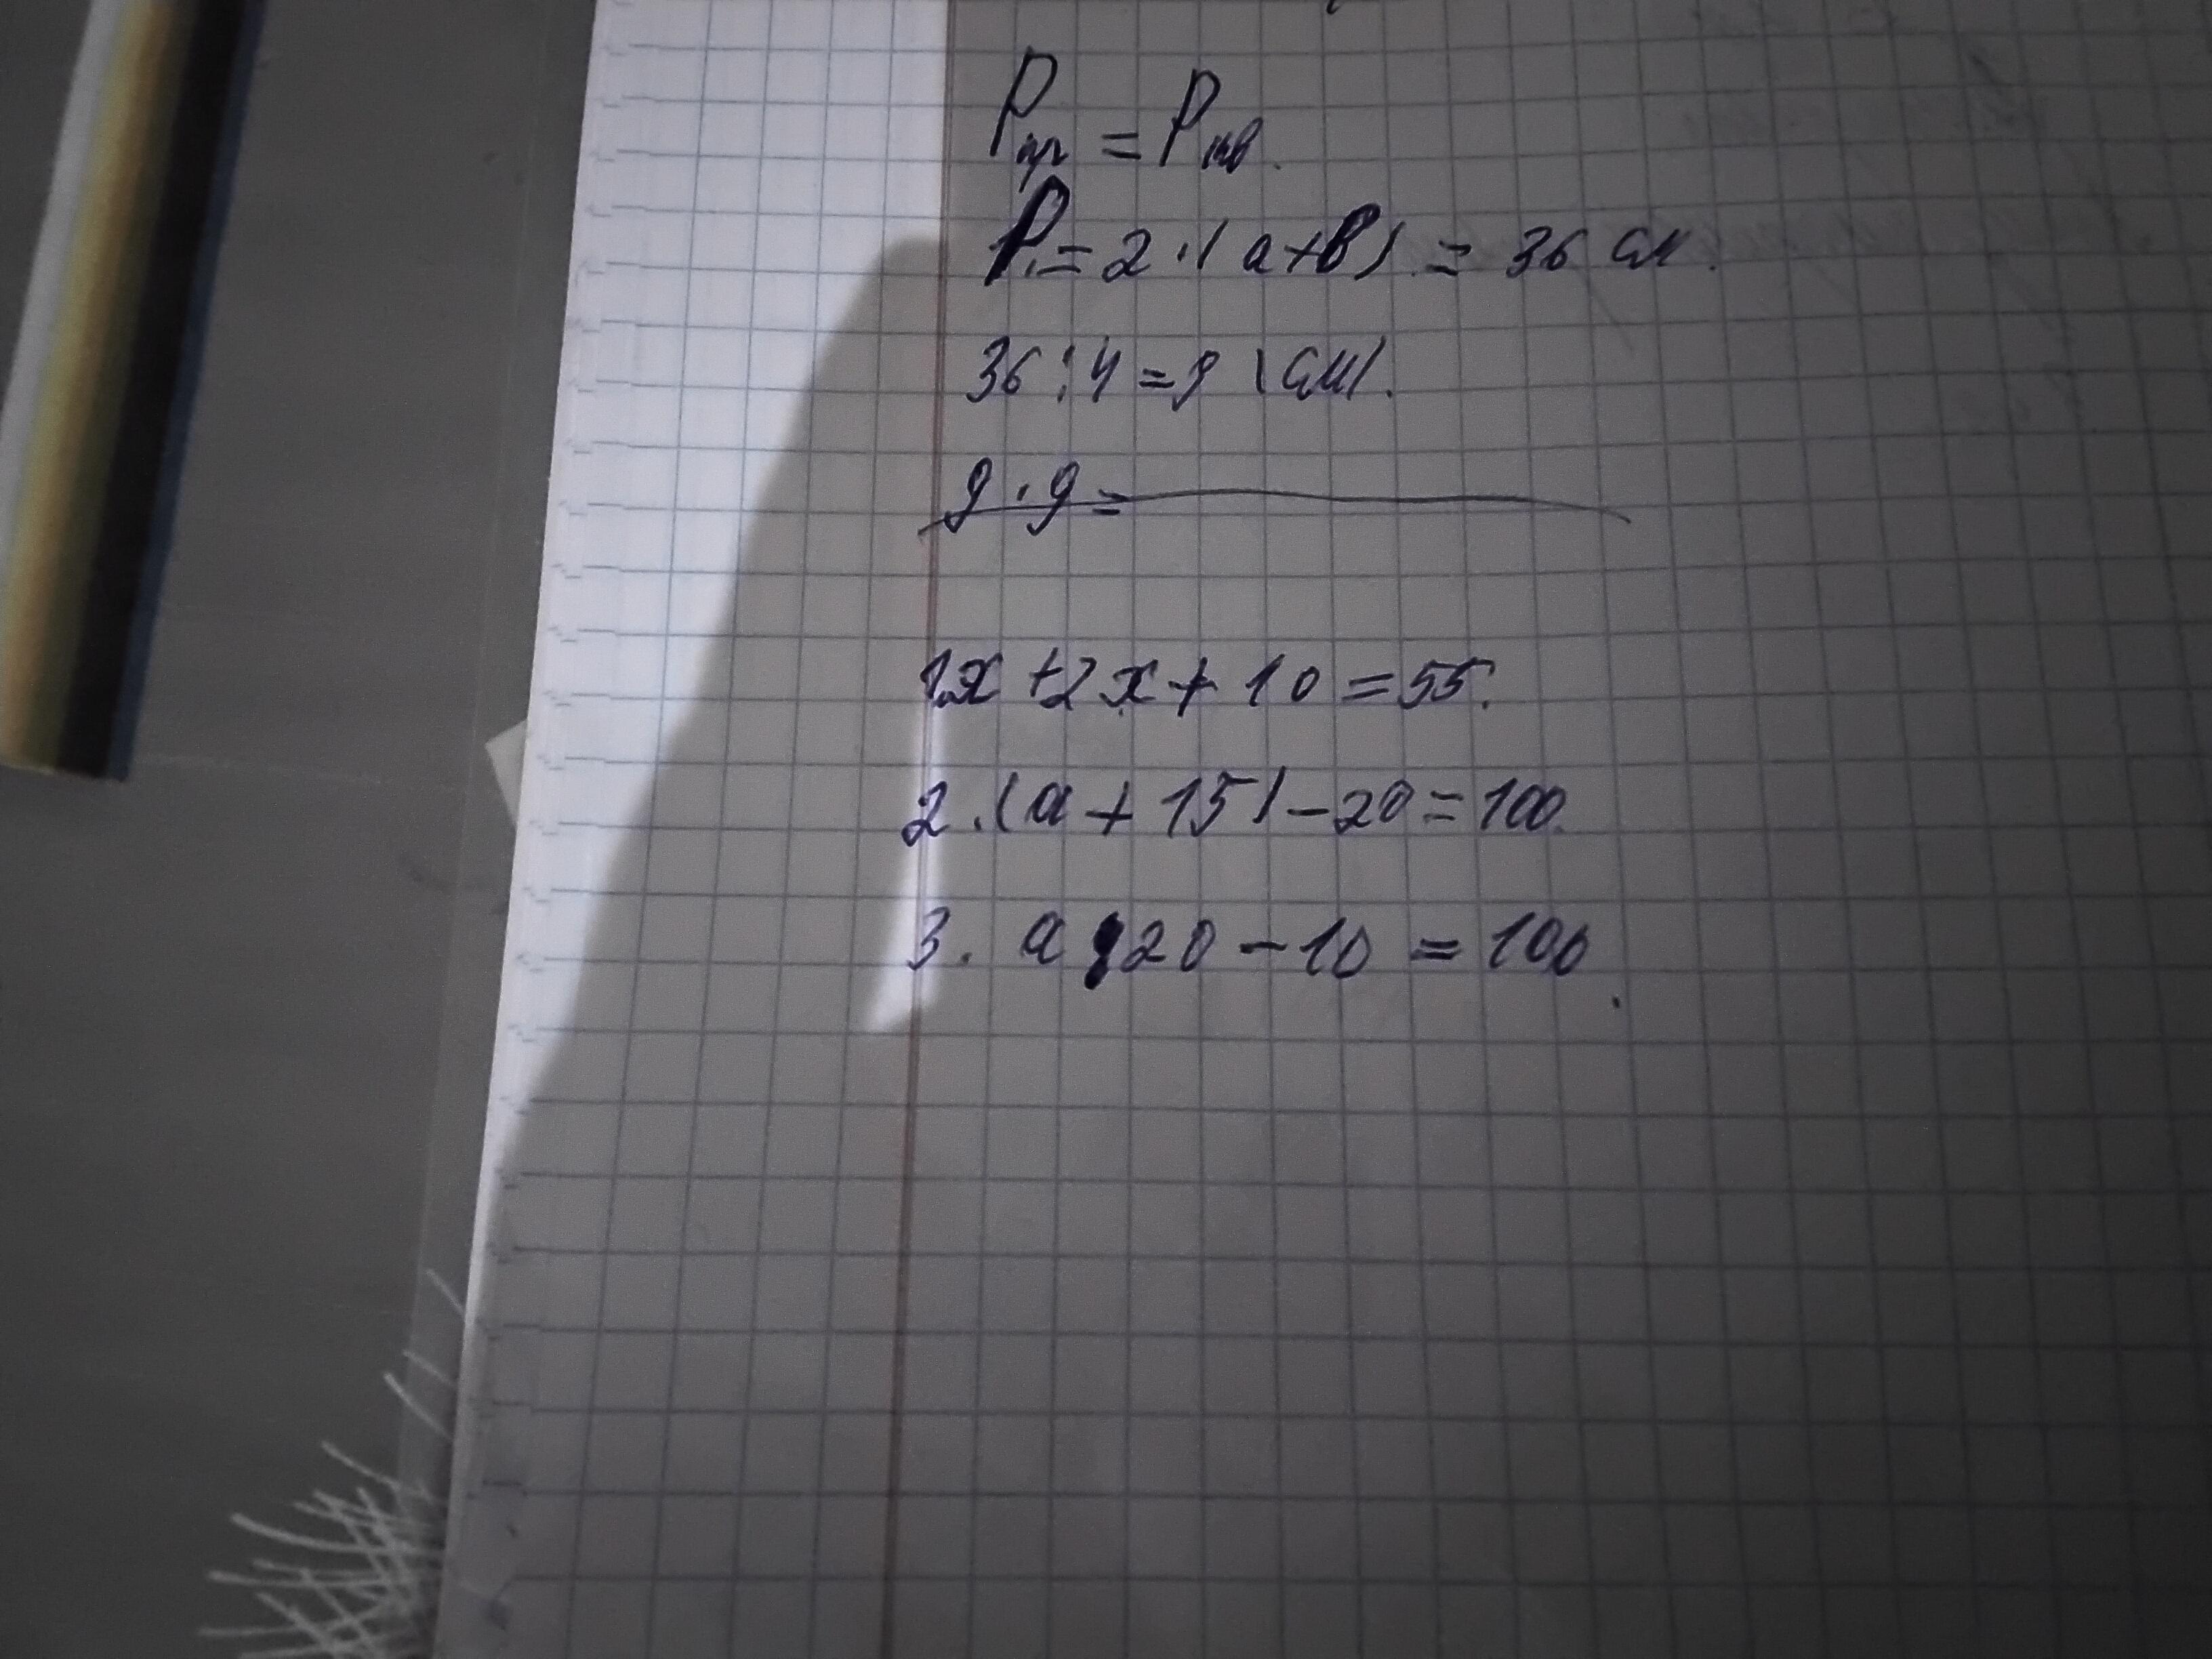 Pпр = Pкв.
P = 2 · (a+b) = 36 см.
36 : 4 = 9 (см).
9 · 9 =
1. x + 2x + 10 = 55.
2. (a + 15) - 20 = 100.
3. a : 20 - 10 = 100.